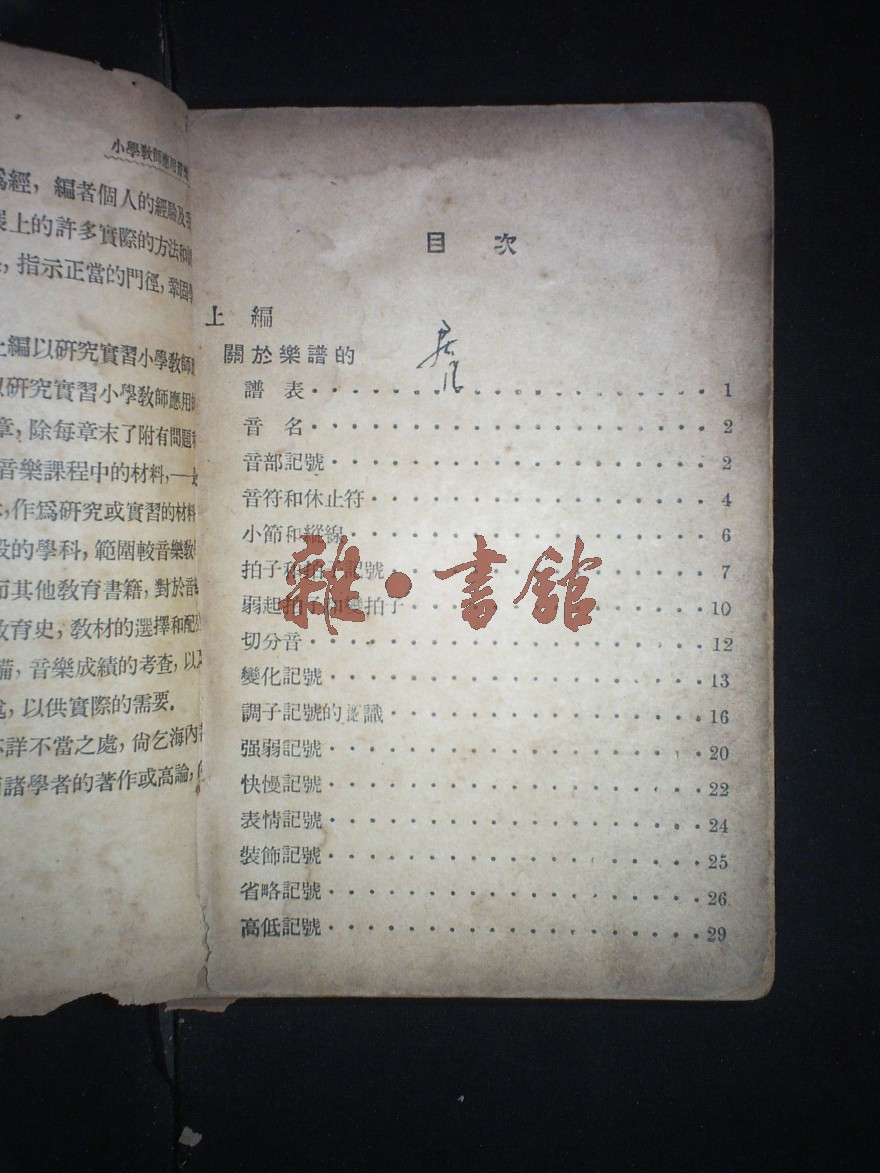 小學教師應用音樂
爲經，編者個人的經驗及
上的許多實際的方法和
，指示正當的門徑，鞏固
上編以研究實習小學教師
以研究實習小學教師應用
章，除每章末了附有問題
音樂課程中的材料，——
，作爲研究或實習的材料
的學科，範圍較音樂教
而其他教育書籍，對於音
教育史，教材的選擇和配
備，音樂成績的考查，以及
，以供實際的需要．
不詳不當之處，尙乞海內
諸學者的著作或高論，
目 次
上 編
關於樂譜的
譜 表 · · · · · · · · · · · · · · · · · · 1
音 名 · · · · · · · · · · · · · · · · · · 2
音部記號 · · · · · · · · · · · · · · · · · 2
音符和休止符 · · · · · · · · · · · · · · · 4
小節和縱線 · · · · · · · · · · · · · · · · 6
拍子和拍子記號 · · · · · · · · · · · · · · 7
弱起拍子和變拍子 · · · · · · · · · · · · · 10
切分音 · · · · · · · · · · · · · · · · · · 12
變化記號 · · · · · · · · · · · · · · · · · 13
調子記號的認識 · · · · · · · · · · · · · · 16
强弱記號 · · · · · · · · · · · · · · · · · 20
快慢記號 · · · · · · · · · · · · · · · · · 22
表情記號 · · · · · · · · · · · · · · · · · 24
裝飾記號 · · · · · · · · · · · · · · · · · 25
省略記號 · · · · · · · · · · · · · · · · · 26
高低記號 · · · · · · · · · · · · · · · · · 29
雜·書館